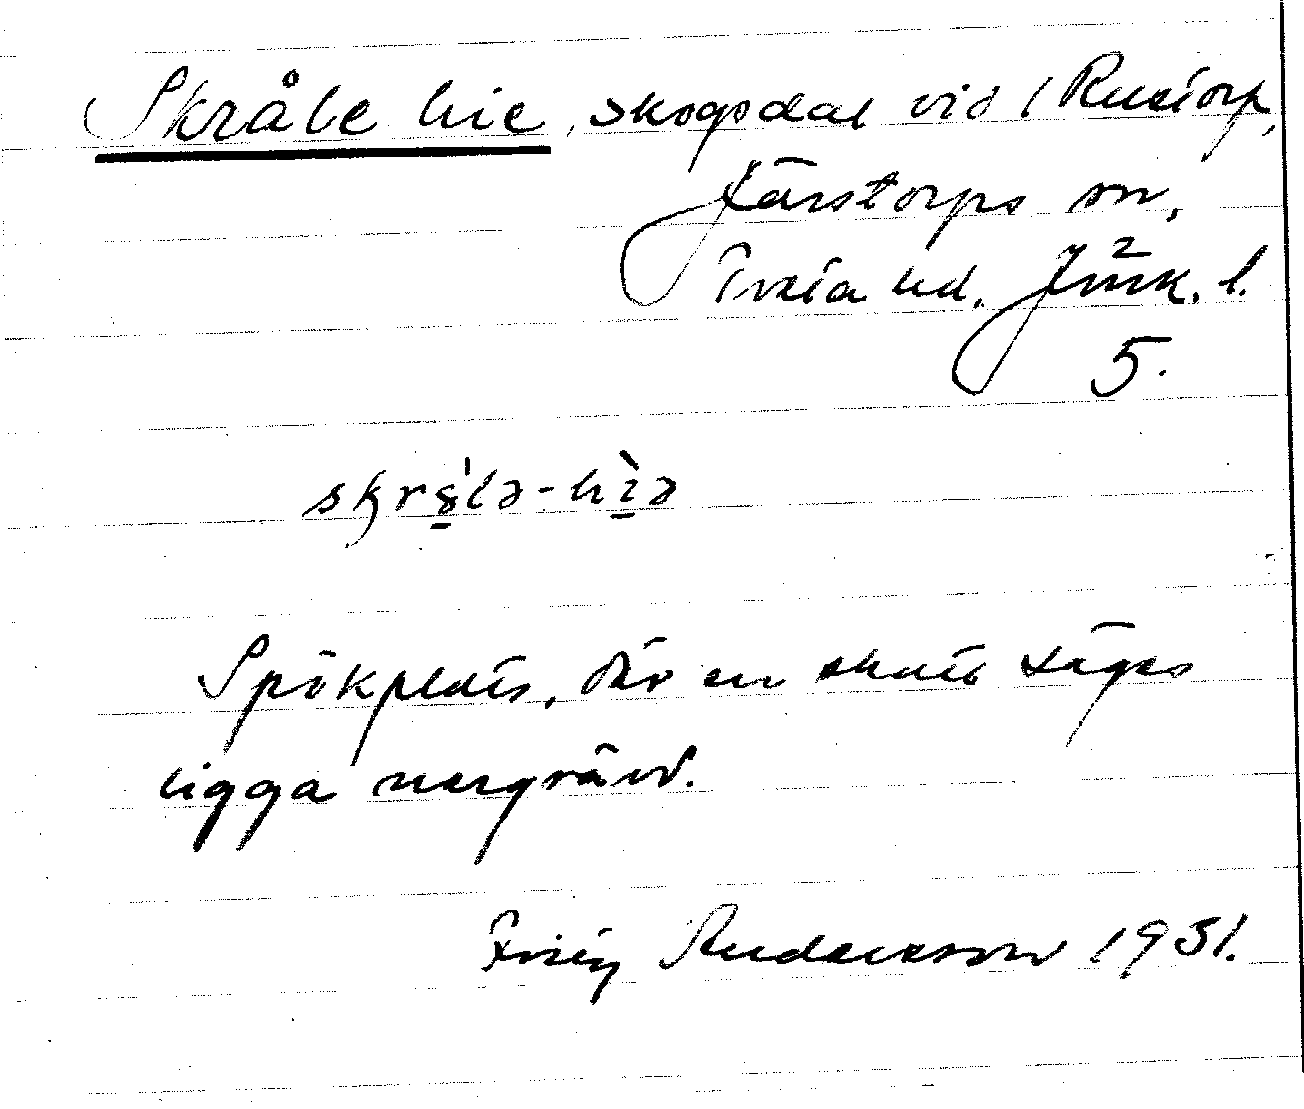 Skråle hie, skogsdal vid / Rustorp,
Järstorps sn,
Tveta hd. Jönk. l.
5.
skrålə-hìə
Spökplats, där en skatt säges
ligga nergrävd.
Fritz Andersson 1931.